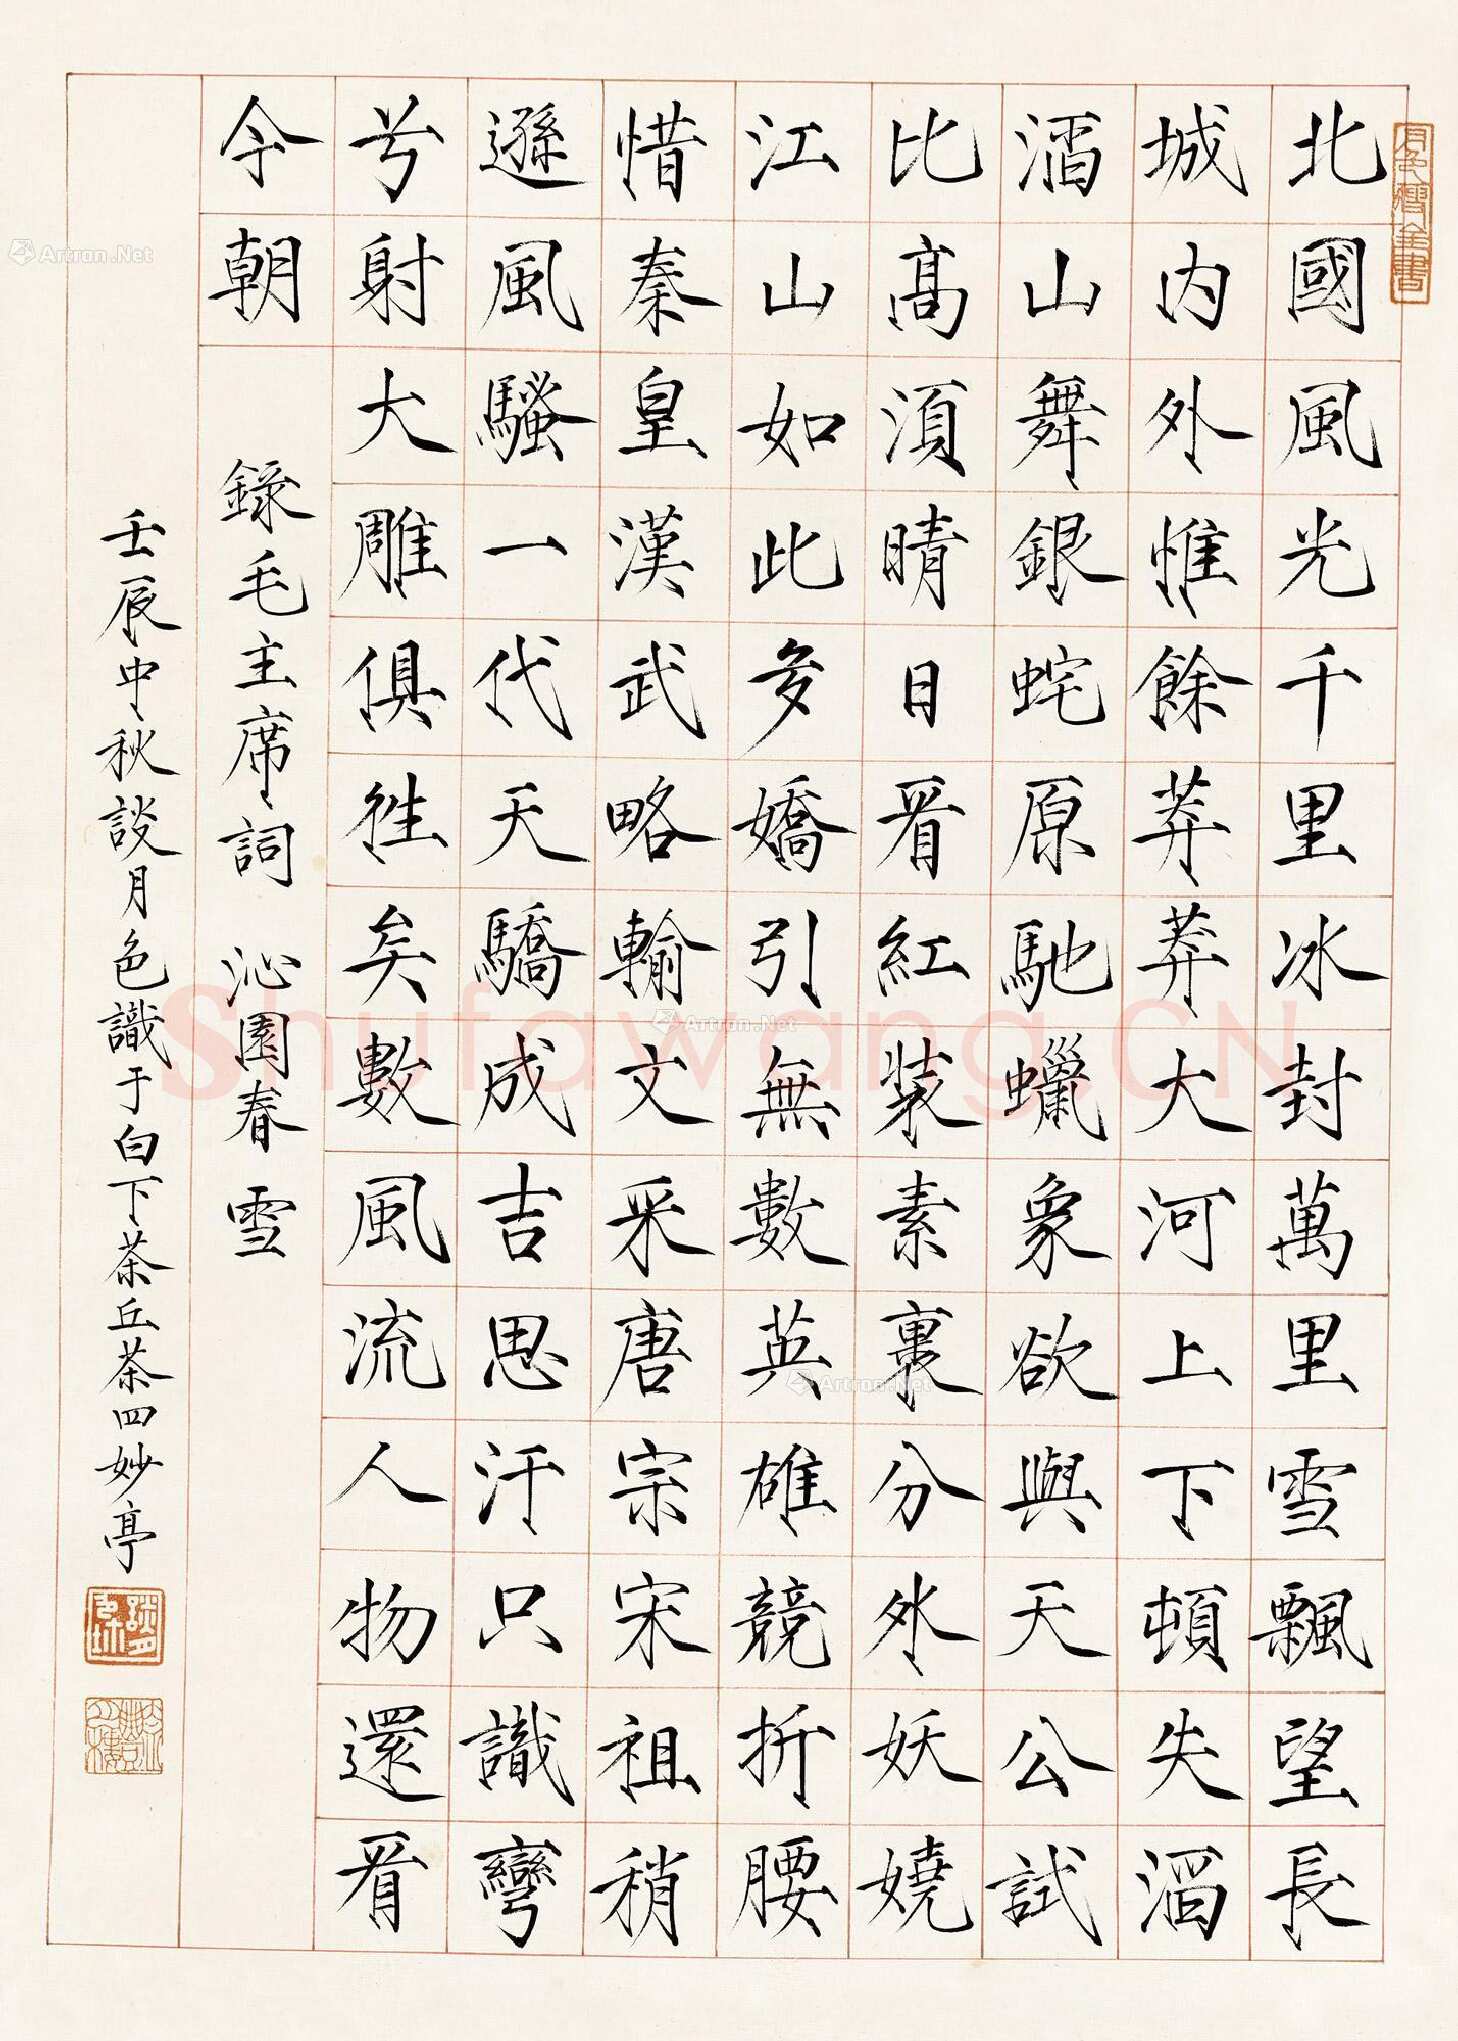 北國風光千里冰封萬里雪飄望長
城内外惟餘莽莽大河上下頓失滔
滔山舞銀蛇原馳蠟象欲與天公試
比高須晴日看紅裝素裹分外妖嬈
江山如此多嬌引無數英雄競折腰
惜秦皇漢武略輸文采唐宗宋祖稍
遜風騷一代天驕成吉思汗只識彎
弓射大雕俱往矣數風流人物還看
今朝 錄毛主席詞 沁園春 雪
壬辰中秋談月色識于白下茶丘茶四妙亭
月色瘦金書
Artron.Net
Artron.Net
Artron.Net
Shufawang.CN